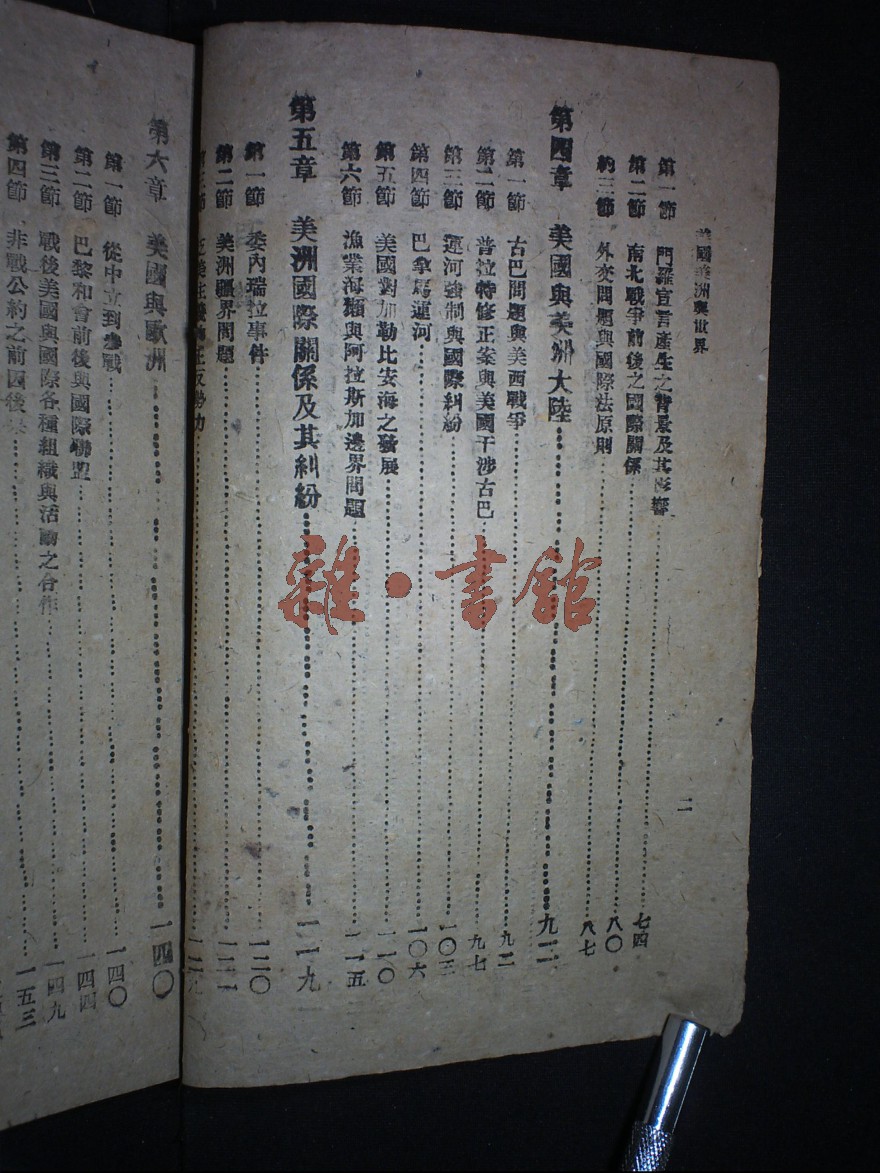 美國美洲與世界
二
第一節 門羅宣言產生之背景及其影響 七四
第二節 南北戰爭前後之國際關係 八〇
第三節 外交問題與國際法原則 八七
第四章 美國與美洲大陸 九二
第一節 古巴問題與美西戰爭 九二
第二節 普拉特修正案與美國干涉古巴 九七
第三節 運河強制與國際糾紛 一〇三
第四節 巴拿馬運河 一〇六
第五節 美國對加勒比安海之發展 一一〇
第六節 漁業海獺與阿拉斯加邊界問題 一一五
第五章 美洲國際關係及其糾紛 一一九
第一節 委內瑞拉事件 一二〇
第二節 美洲疆界問題 一二二
第三節
第六章 美國與歐洲 一四〇
第一節 從中立到參戰 一四〇
第二節 巴黎和會前後與國際聯盟 一四四
第三節 戰後美國與國際各種組織與活動之合作 一四九
第四節 非戰公約之前因後果 一五三
雜·書館